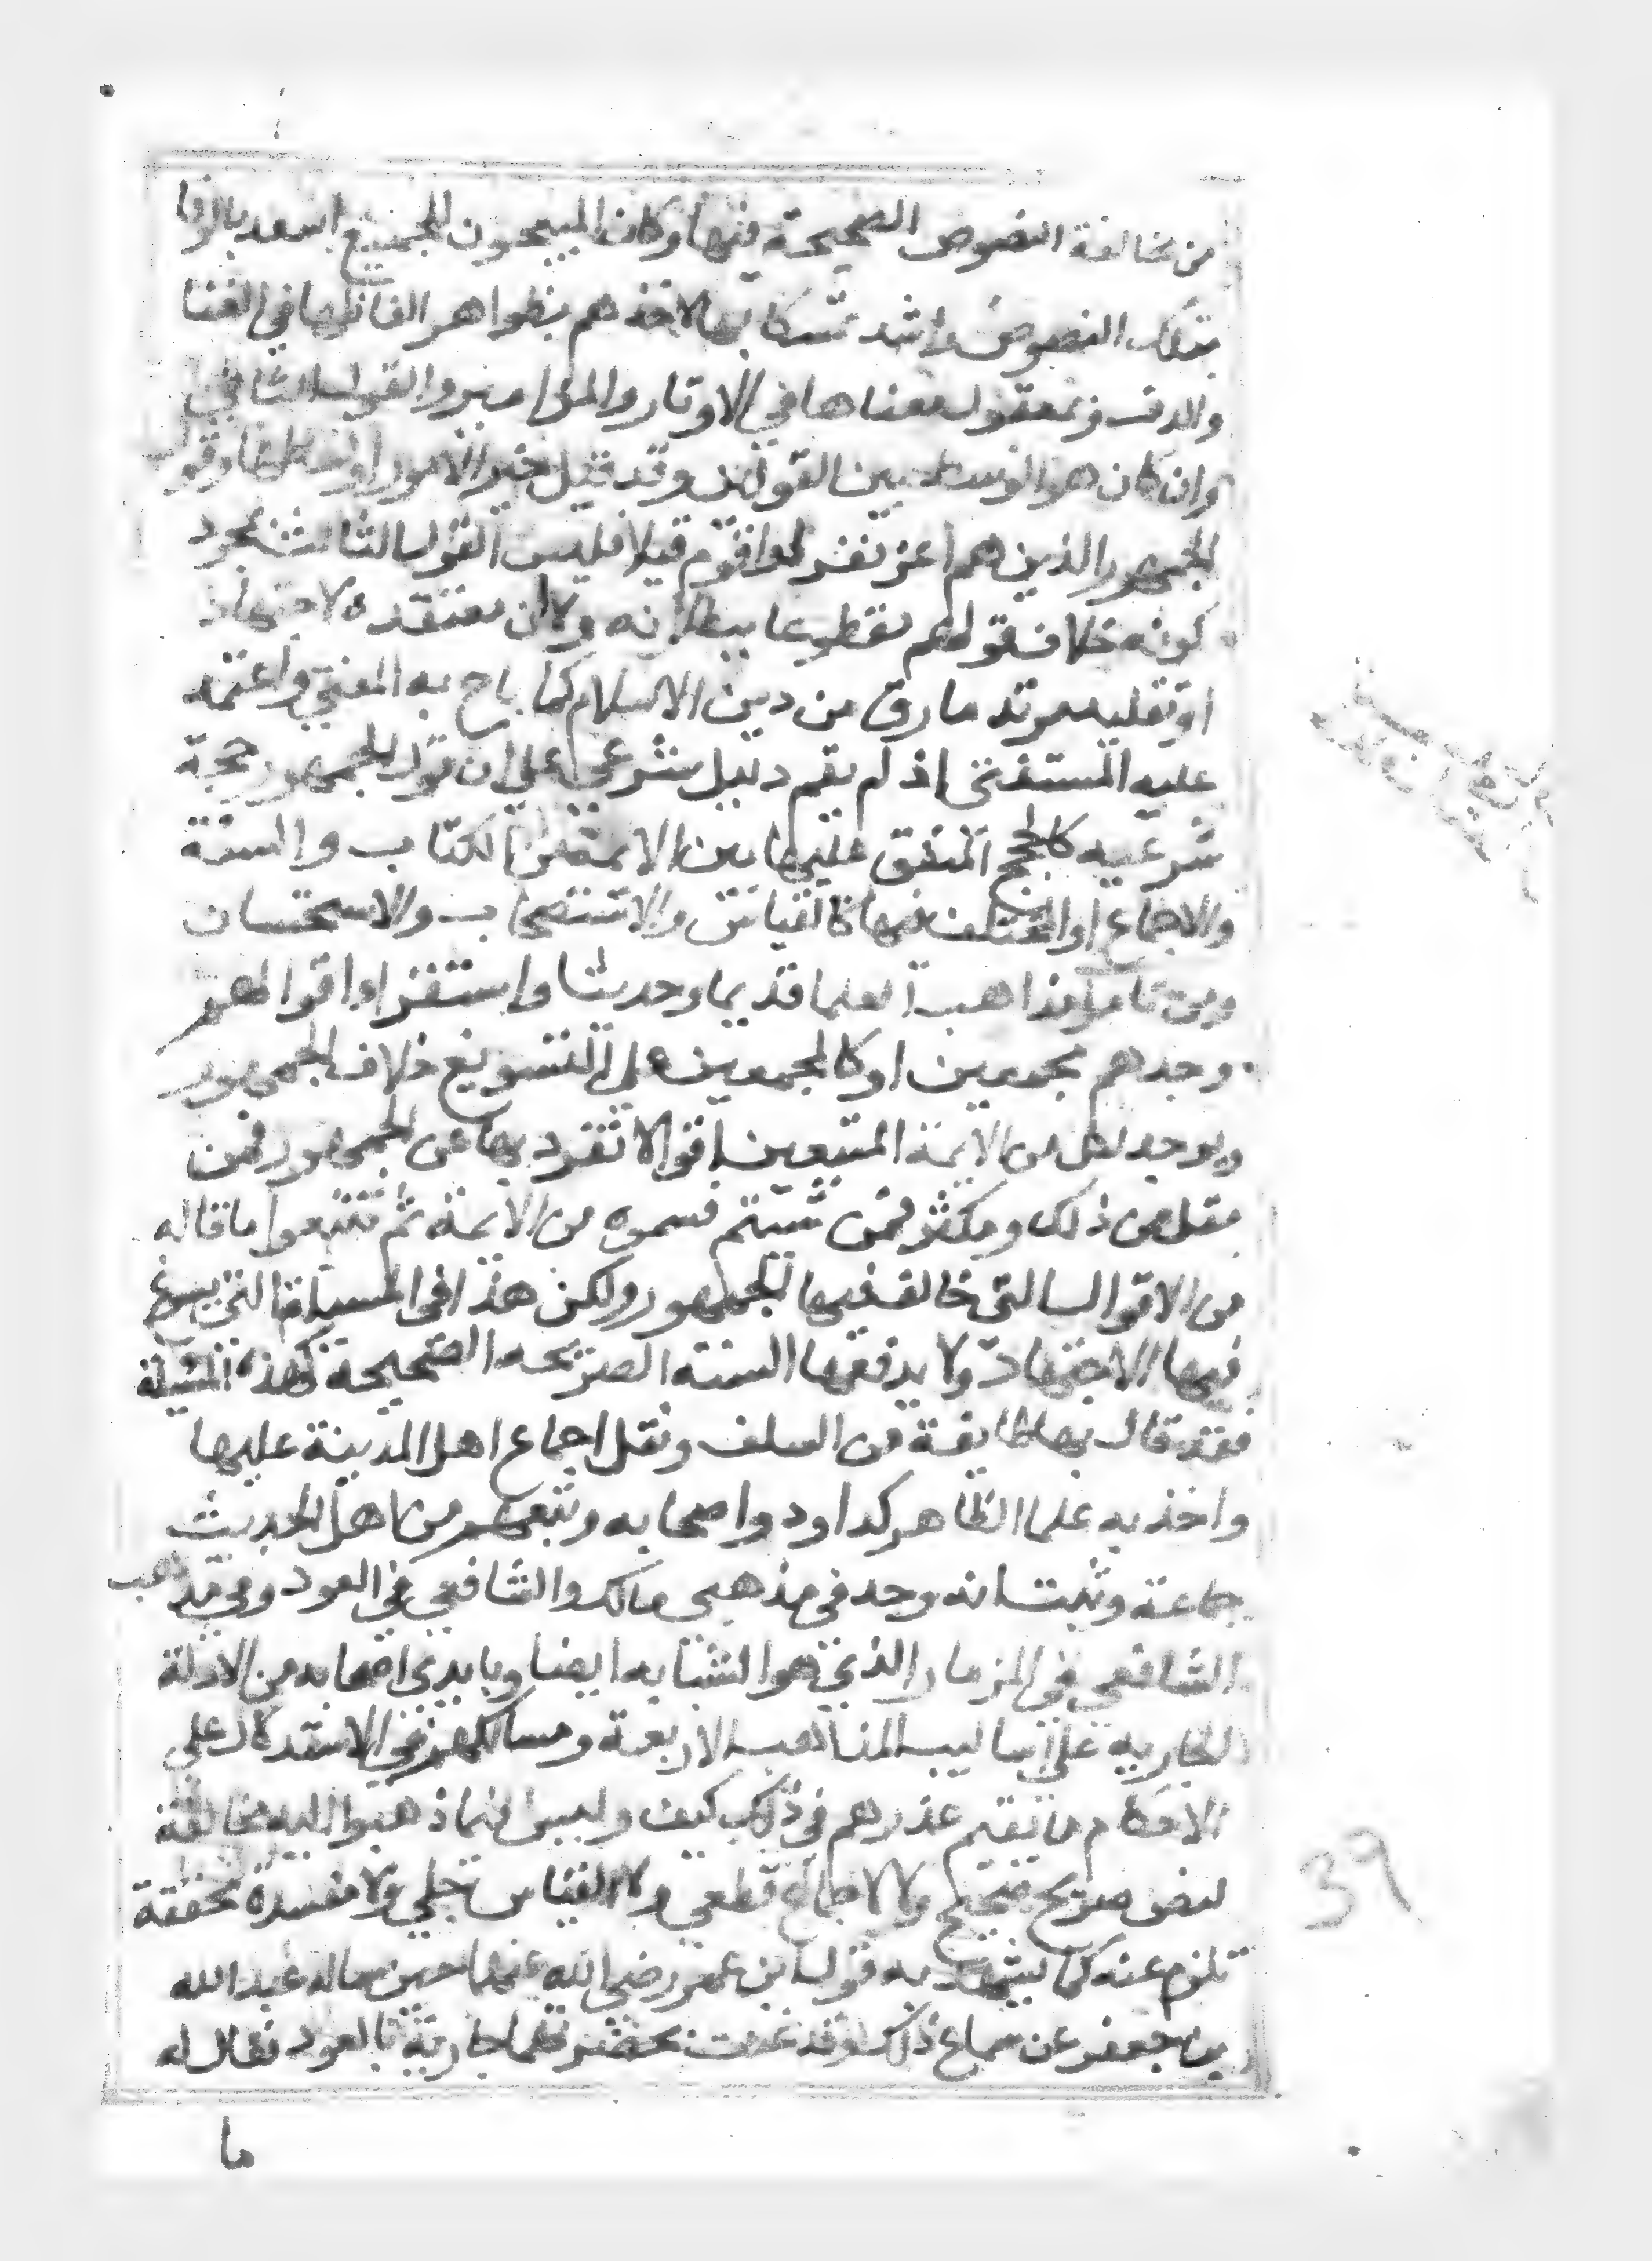 من مخالفة النصوص الصحيحة فيها وكان المبيحون للجميع اسعد بالوفا
بتلك النصوص واشد تمسكا بها لاخذهم بظواهر الفاظها في الغنا
والدف وبمعقول معناها في الاوتار والمزامير والقول الثاني
وان كان هو الوسط بين القولين وقد قيل خير الامور اوساطها وقول
الجمهور الذين هم اعز نفرا واقوم قيلا فليس القول الثالث بمجرد
كونه خلاف قولهم مقطوعا ببطلانه ولا ان معتقده لاجتهاد
او تقليد مرتد مارق من دين الاسلام كما باح به المفتي واعتمد
عليه المستفتي اذ لم يقم دليل شرعي على ان قول الجمهور حجة
شرعيه كالحجج المتفق عليها بين الايمة من الكتاب والسنة
والاجماع او المختلف فيها كالقياس والاستصحاب والاستحسان
ومن تامل مذاهب العلما قديما وحديثا واستقرا اقوالهم
وجدهم مجمعين او كالمجمعين على التسويغ خلاف الجمهور
ويوجد لكل من الايمة المتبعين اقوالا تفرد بها عن الجمهور فمن
مقل من ذلك ومكثر فمن شيتم فسموه من الايمة ثم تتبعوا ما قاله
من الاقوال التي خالف فيها الجمهور ولكن هذا في المسايل التي يسوغ
فيها الاجتهاد ولا يدفعها السنة الصريحه الصحيحة كهذه المسيلة
فقد قال بها طايفة من السلف ونقل اجماع اهل المدينة عليها
واخذ به علما الظاهر كداود واصحابه وتبعهم من اهل الحديث
جماعة وثبت انه وجد في مذهبي مالك والشافعي في العود وفي مذهب
الشافعي في المزمار الذي هو الشبابه ايضا وبايدي اصحابه من الادلة
الجاريه على اساليب المذاهب الاربعة ومسالكهم في الاستدلال على
الاحكام ما يقيم عذرهم في ذلك كيف وليس فيما ذهبوا اليه مخالفة
لنص صريح صحيح ولا لاجماع قطعي ولا لقياس جلي ولا مفسدة محققة
تلزم عنه كما يشهد به قول ابن عمر رضي الله عنهما حين ساله عبد الله
بن جعفر عن سماع ذلك وقد غنت بحضرتهما جارية بالعود فقال له
ما
39